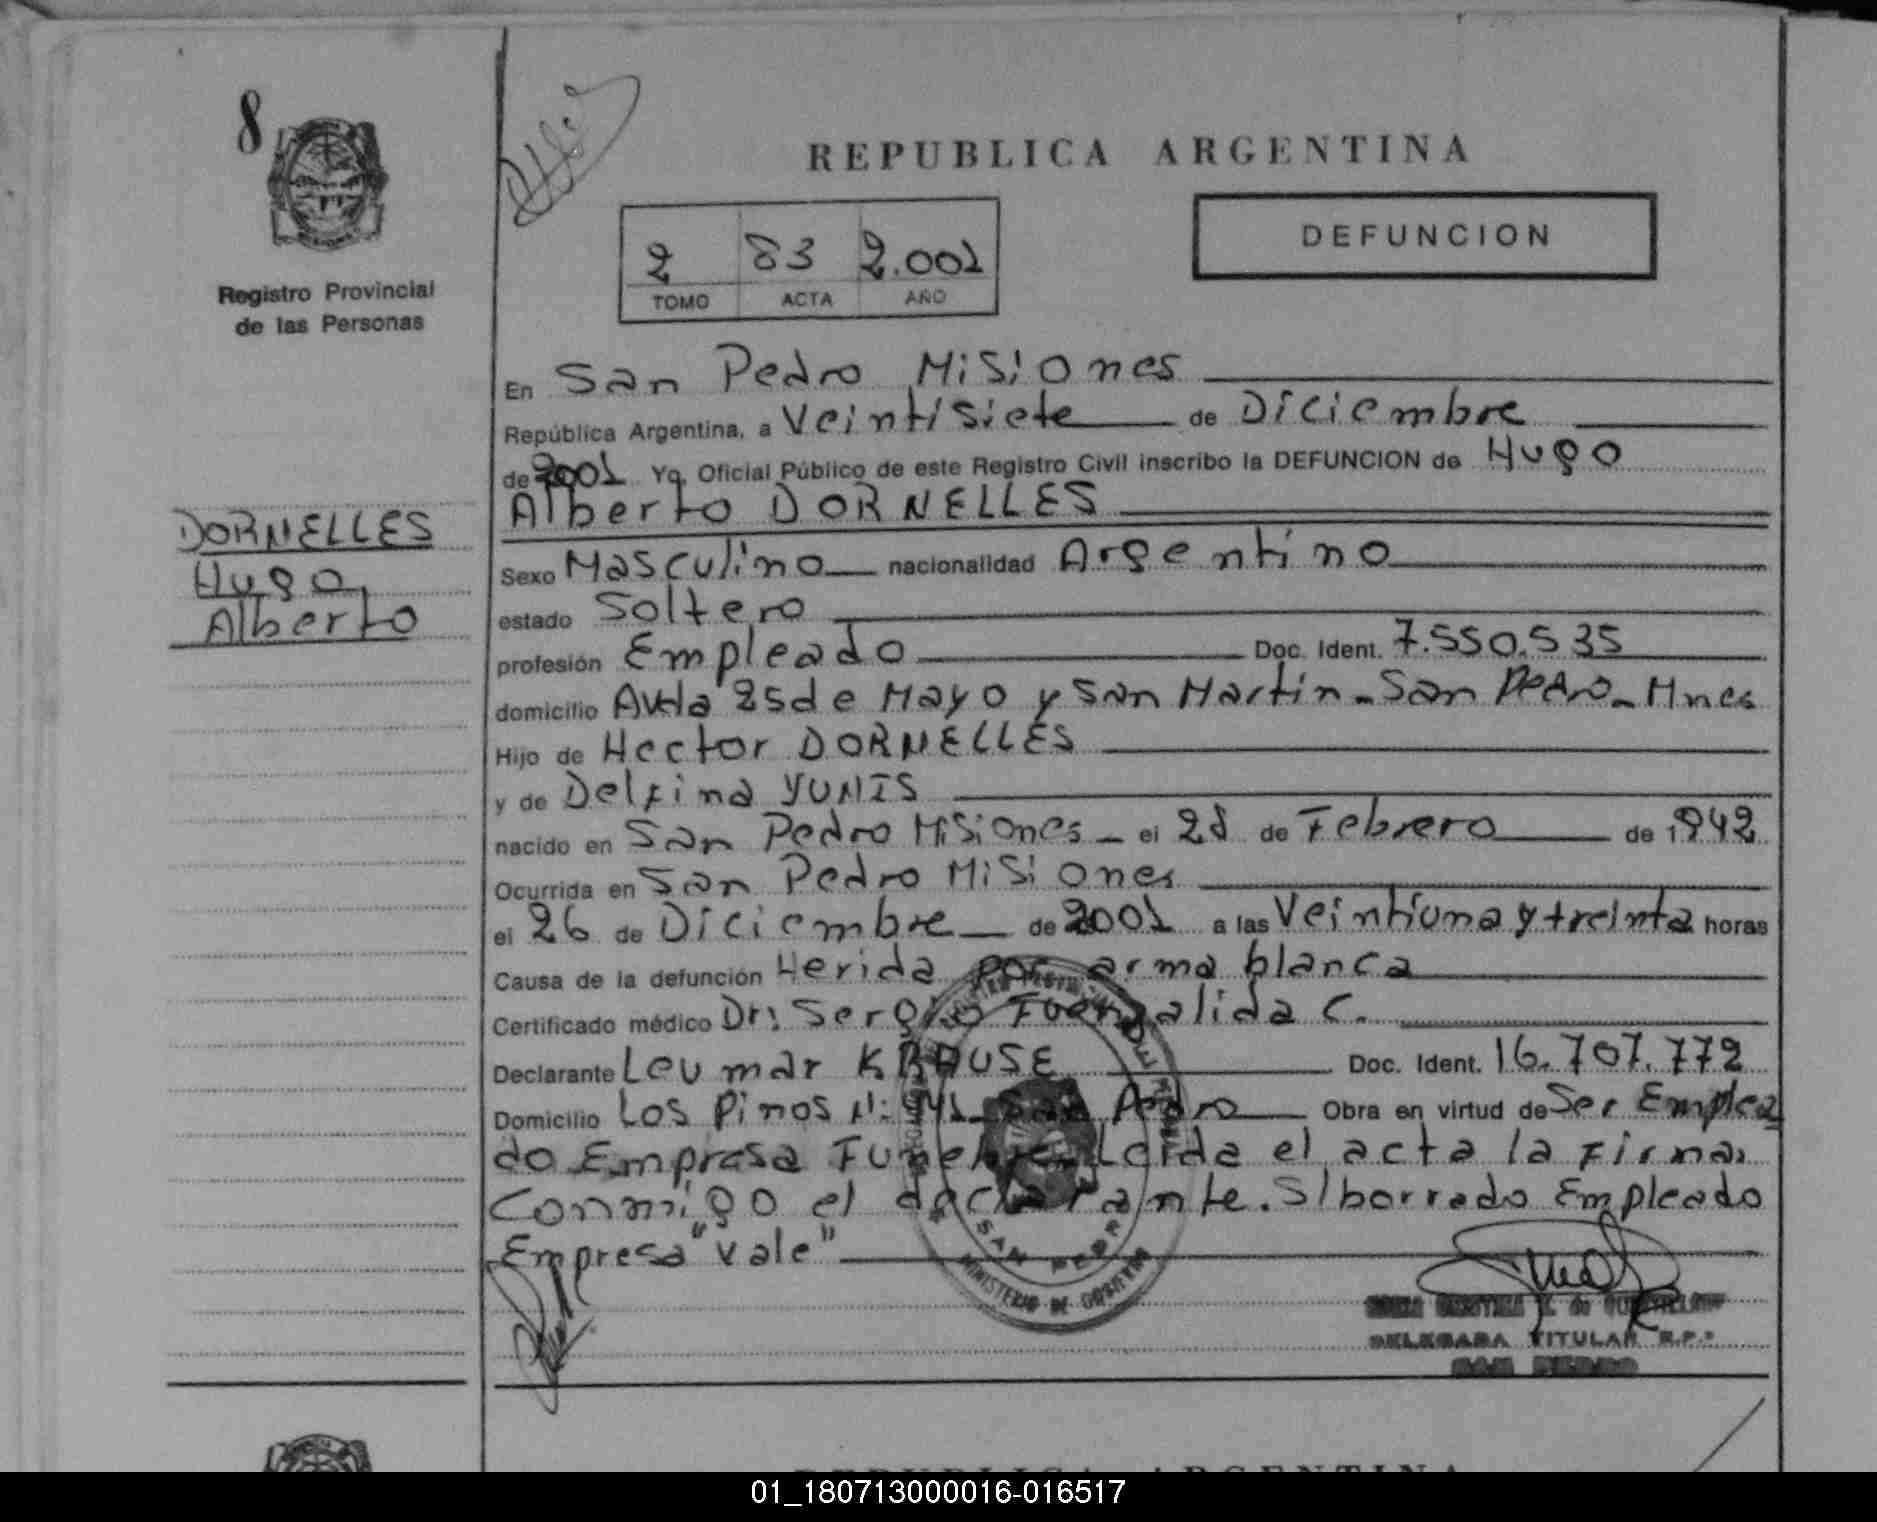 8
REPUBLICA ARGENTINA
DEFUNCION
2 83 2.001
TOMO ACTA AÑO
Registro Provincial
de las Personas
En San Pedro Misiones
República Argentina, a Veintisiete de Diciembre
de 2001 Yo, Oficial Público de este Registro Civil inscribo la DEFUNCION de Hugo
Alberto DORNELLES
DORNELLES
Hugo
Alberto
Sexo Masculino nacionalidad Argentino
estado Soltero
profesión Empleado Doc. Ident. 7.550.535
domicilio Avda 25 de Mayo y San Martin - San Pedro - Mnes
Hijo de Hector DORNELLES
y de Delfina YUNIS
nacido en San Pedro Misiones - el 28 de Febrero de 1942
Ocurrida en San Pedro Misiones
el 26 de Diciembre de 2001 a las Veintiuna y treinta horas
Causa de la defunción Herida por arma blanca
Certificado médico Dr: Sergio Fuenzalida C.
Declarante Leumar KRAUSE Doc. Ident. 16.707.772
Domicilio Los Pinos San Pedro Obra en virtud de Ser Emplea
do Empresa Funebre. Leida el acta la firma,
conmigo el declarante. S/borrado Empleado
Empresa "Vale"
SAN PEDRO
MINISTERIO DE GOBIERNO
DELEGADA TITULAR R.P.P
SAN PEDRO
REPUBLICA ARGENTINA
01_180713000016-016517